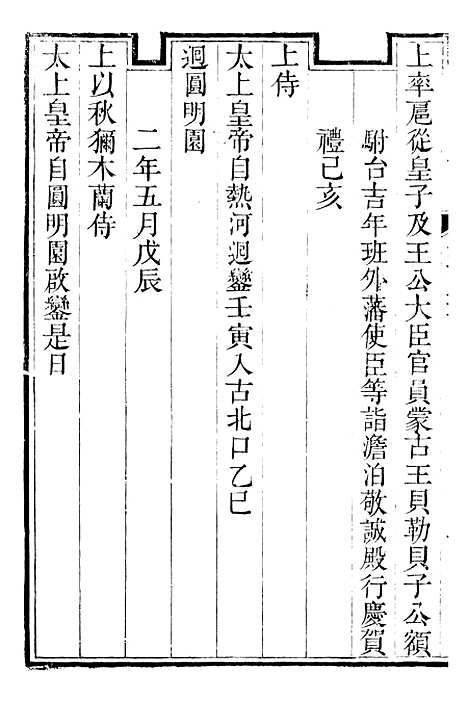 上率扈從皇子及王公大臣官員蒙古王貝勒貝子公額
駙台吉年班外藩使臣等詣澹泊敬誠殿行慶賀
禮己亥
上侍
太上皇帝自熱河迴鑾壬寅入古北口乙巳
迴圓明園
二年五月戊辰
上以秋獮木蘭侍
太上皇帝自圓明園啟鑾是日